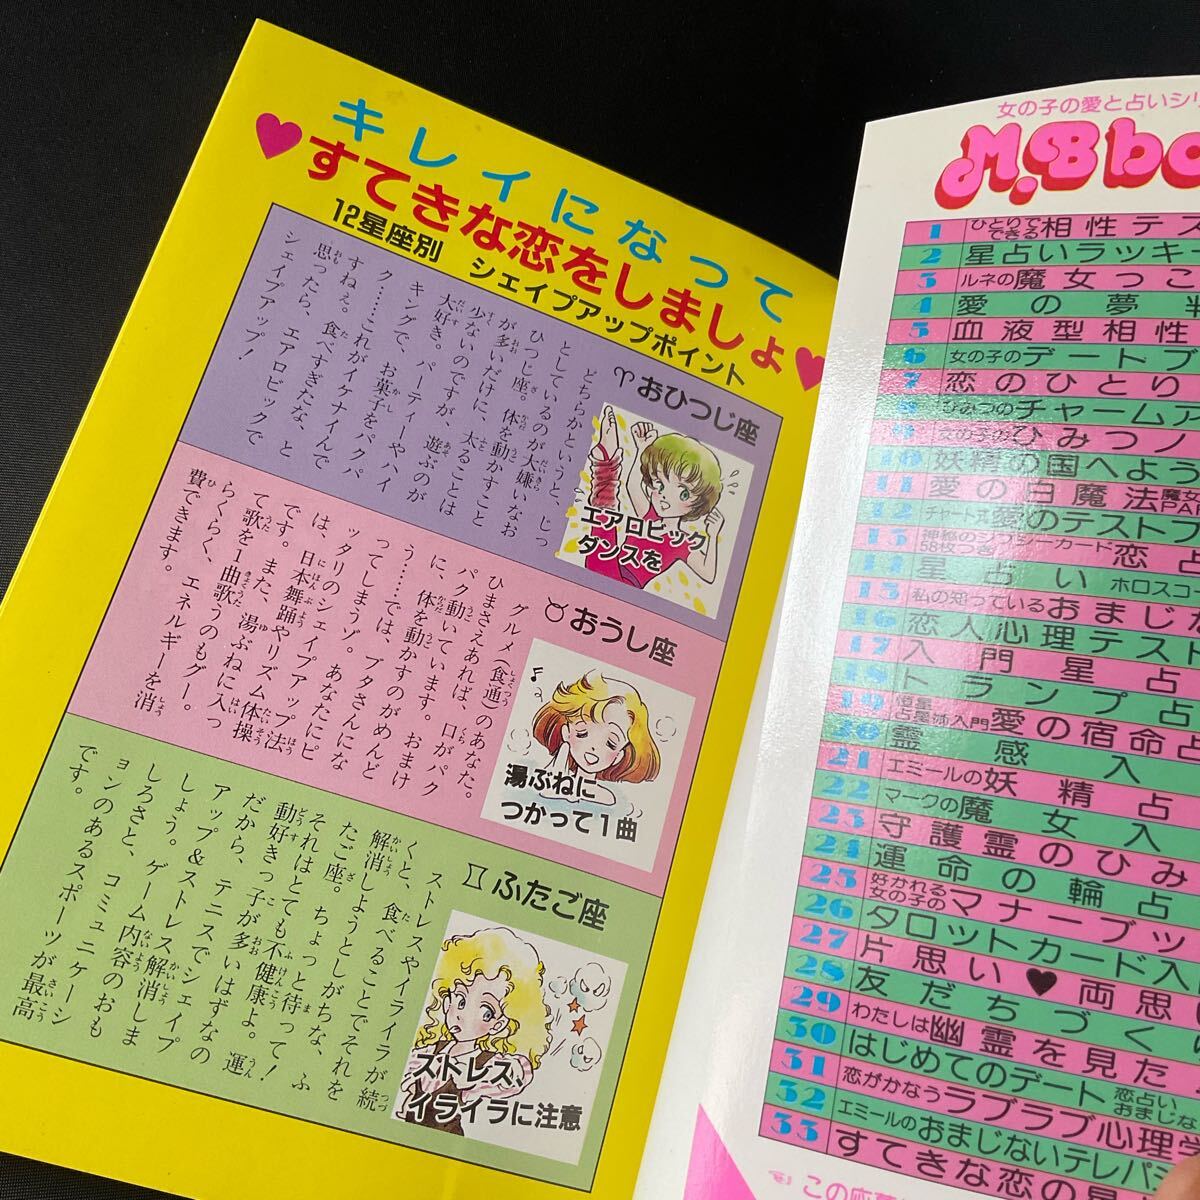 キレイになって
すてきな恋をしましょ
12星座別 シェイプアップポイント
♈おひつじ座
エアロビック
ダンスを
どちらかというと、じっ
としているのが大嫌いなお
ひつじ座。体を動かすこと
が多いだけに、太ることは
少ないのですが、遊ぶのが
大好き。パーティーやハイ
キングで、お菓子をパクパ
ク……これがイケナイんで
すねぇ。食べすぎたな、と
思ったら、エアロビックで
シェイプアップ!
♉おうし座
湯ぶねに
つかって1曲
グルメ(食通)のあなた。
ひまさえあれば、口がパク
パク動いています。おまけ
に、体を動かすのがめんど
う……では、ブタさんにな
ってしまうゾ。あなたにピ
ッタリのシェイプアップ法
は、日本舞踊やリズム体操
です。また、湯ぶねに入っ
て歌を1曲歌うのもグー。
らくらく、エネルギーを消
費できます。
♊ふたご座
ストレス、
イライラに注意
ストレスやイライラが続
くと、食べることでそれを
解消しようとしがちな、ふ
たご座。ちょっと待って!
それはとても不健康よ。運
動好きっ子が多いはずなの
だから、テニスでシェイプ
アップ&ストレス解消しま
しょう。ゲーム内容のおも
しろさと、コミュニケーシ
ョンのあるスポーツが最高
です。
女の子の愛と占いシリ
M.B bo
1 ひとりでできる相性テス
2 星占いラッキー
3 ルネの魔女っこ
4 愛の夢判
5 血液型相性
6 女の子のデートブ
7 恋のひとり
8 ひみつのチャームア
9 女の子のひみつノ
10 妖精の国へよう
11 愛の白魔法 魔女
12 チャート式愛のテストブ
13 神秘のジプシーカード58枚つき 恋占
14 星占い ホロスコー
15 私の知っているおまじな
16 恋人心理テスト
17 入門星占
18 トランプ占
19 恒星占星術入門愛の宿命占
20 霊感入
21 エミールの妖精占
22 マークの魔女入
23 守護霊のひみ
24 運命の輪占
25 好かれる女の子のマナーブッ
26 タロットカード入
27 片思い♥両思
28 友だちづく
29 わたしは幽霊を見た
30 はじめてのデート 恋占いおまじな
31 恋がかなうラブラブ心理学
32 エミールのおまじないテレパシ
33 すてきな恋の
この